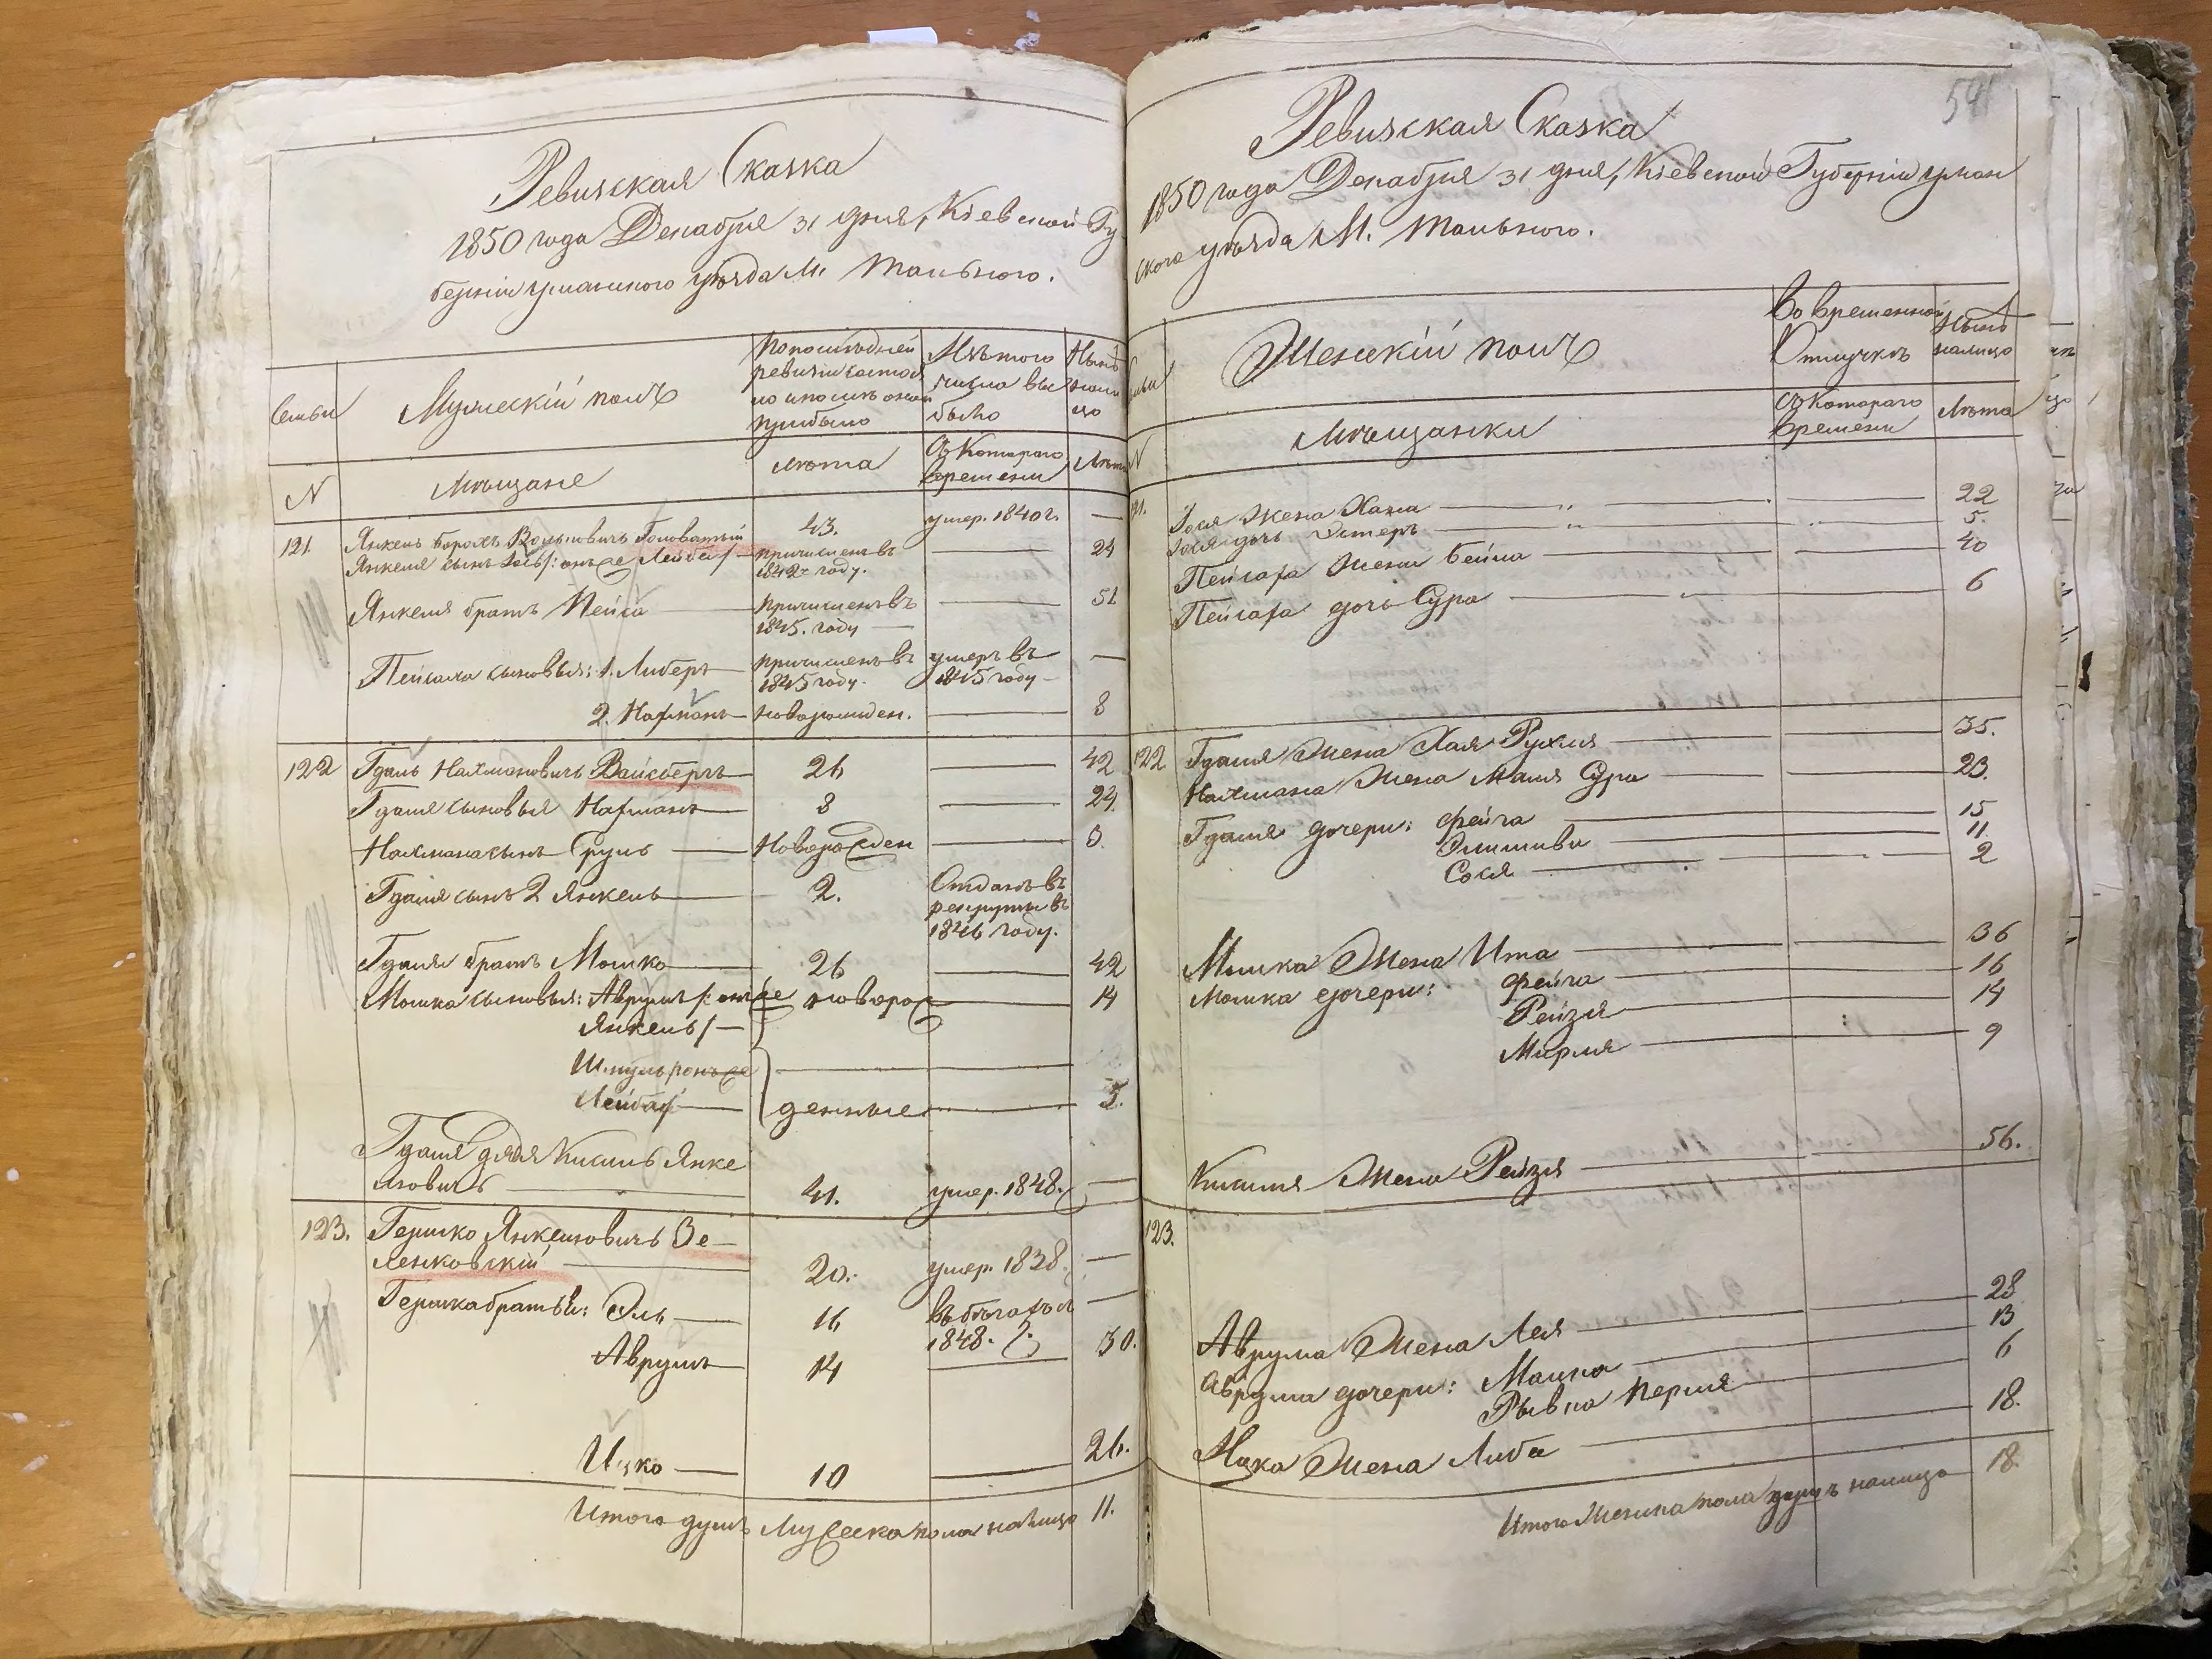 Ревизская Сказка
1850 года Декабря 31 дня, Кіевской Гу-
берніи Уманского уѣзда М. Тального.
Семьи
Мужескій полъ
По последней
ревизіи состоя
ло и послѣ оной
прибыло
Изъ того
числа вы
было
Нынѣ
нали
цо
N
Мѣщане
лѣта
Съ Котораго
времени
Лѣта
121. Янкель Борохъ Вольковичъ Головатый 43. умер. 1840 г. —
Янкеля сынъ Іось /: онъ же Лейба /: причисленъ въ 24
1842 году.
Янкеля братъ Пейса причисленъ въ 51
1845. году
Пейсаха сыновья: 1. Либеръ причисленъ въ умеръ въ —
1845 году. 1845 году
2. Нахманъ новорожден. 8
122 Гдаль Нахмановичъ Вайсбергъ 26 42
Гдаля сыновья Нахманъ 8 24
Нахмана сынъ Сруль Новорожден 3.
Гдаля сынъ 2 Янкель 2. Отданъ въ
рекруты въ
1846 году.
Гдаля братъ Мошко 26 42
Мошка сыновья: Аврумъ /: онъ же новорож 14
Янкель /
Шмуль /: онъ же
Лейба / денные
Гдаля дядя Кисиль Янке
лиовичъ 41. умер. 1848. —
123. Гершко Янкелиовичъ Зе-
ленковскій 20. умер. 1838. —
Гершка братья: Эль 16 въ бѣгахъ съ —
1848. г.
Аврумъ 14 30.
Ицко 10 26.
Итого душъ Мужеска пола налицо 11.
591
Ревизская Сказка
1850 года Декабря 31 дня, Кіевской Губерніи Уман
ского уѣзда М. Тального.
Семьи
Женскій полъ
Во временной
Отлучкѣ
Нынѣ
налицо
N
Мѣщанки
Съ Котораго
времени
Лѣта
121. Іося Жена Хана 22
Іося дочь Эстеръ 5.
Пейсаха Жена Бейла 40
Пейсаха дочь Сура 6
122 Гдаля Жена Хая Рухля 35.
Нахмана Жена Маля Сура 23.
Гдаля дочери: Фейга 15
11.
Сося 2
Мошка Жена Ита 36
Мошка дочери: Фейга 16
Рейзя 14
Мирля 9
Кисиля Жена Рейзя 56.
123.
Аврума Жена Лея 28
Аврума дочери: Малка 13
Рывка Перля 6
Ицка Жена Либа 18.
Итого Женска пола душъ налицо 18.